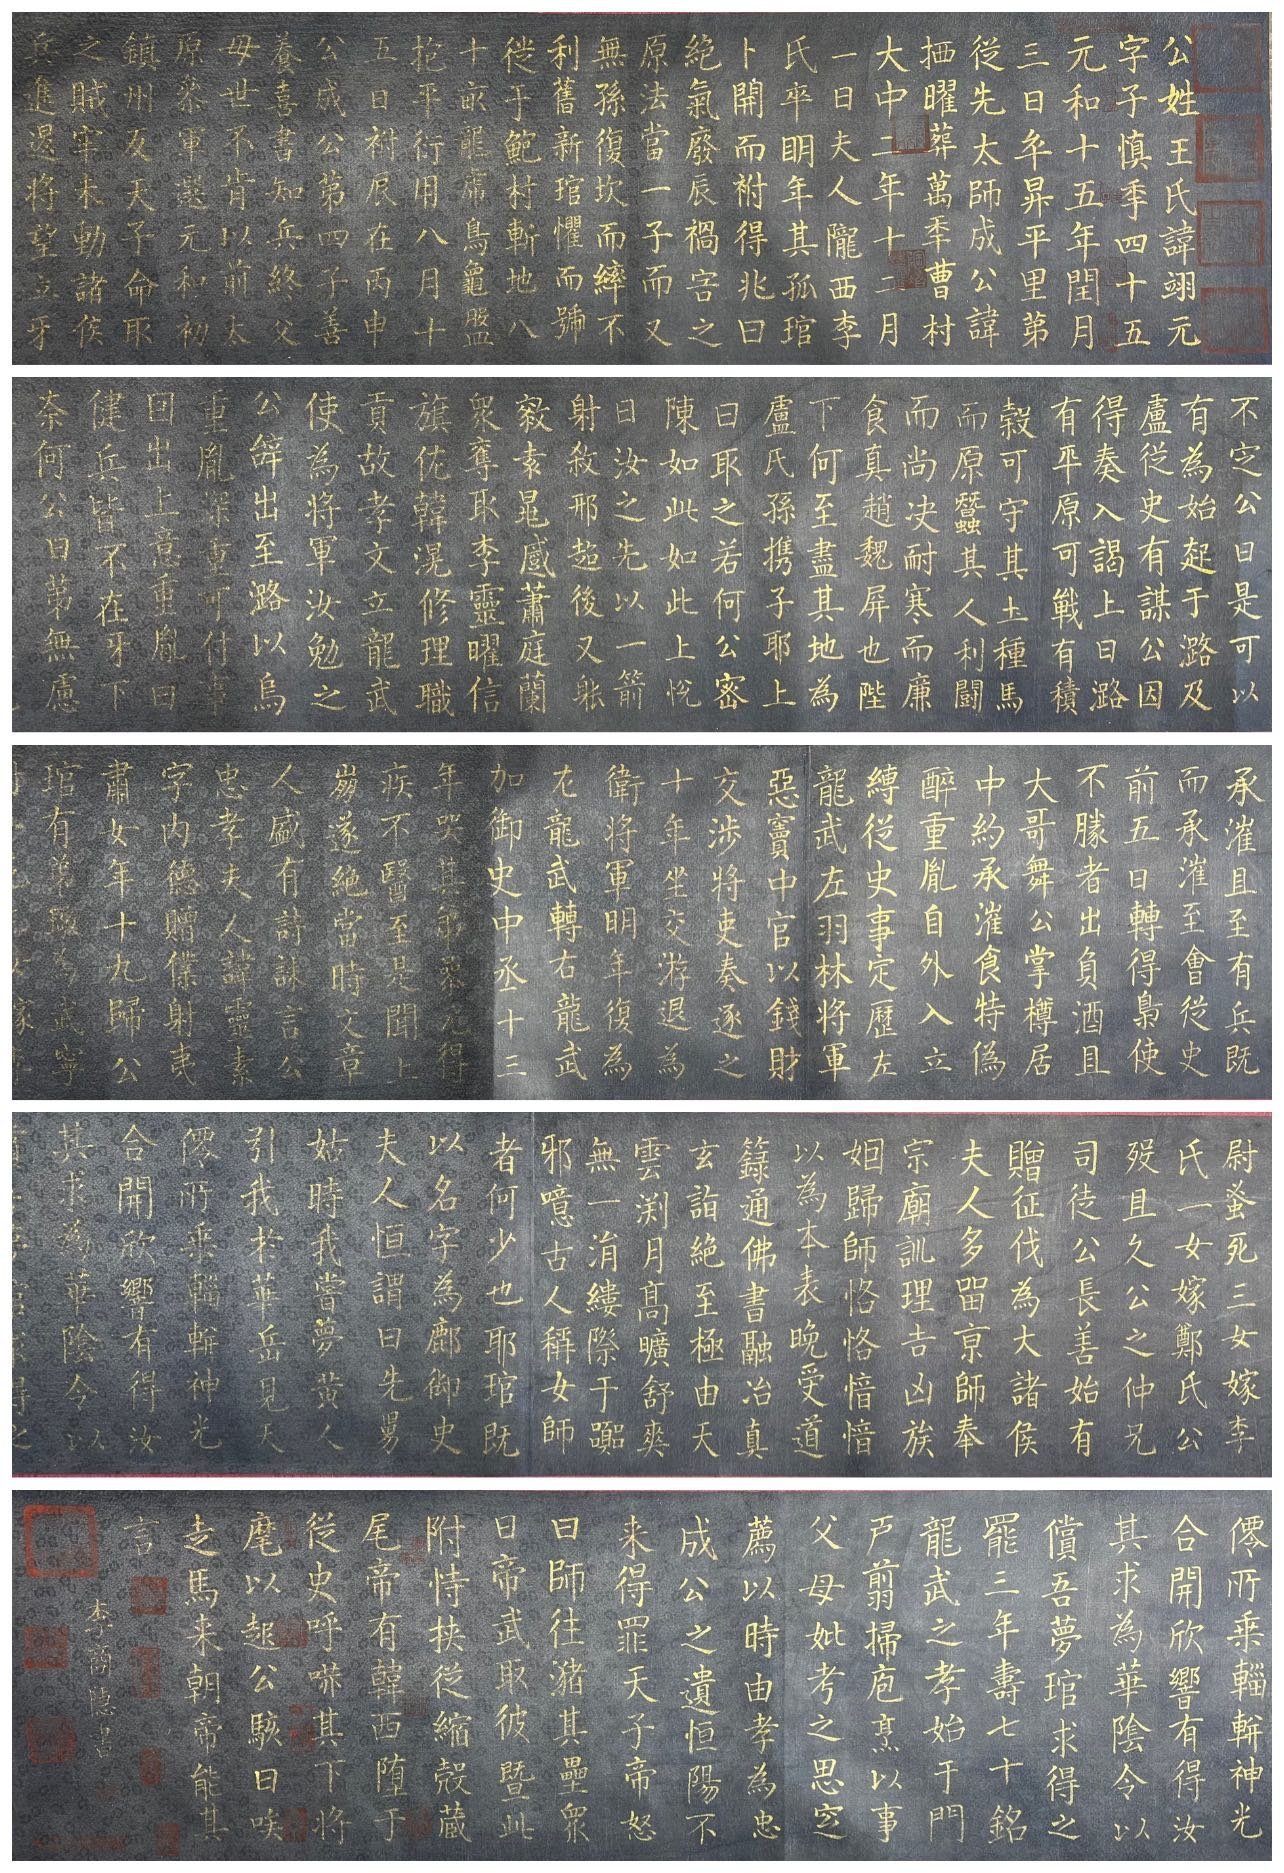 公姓王氏諱翊元
字子慎季四十五
元和十五年閏月
三日卒昇平里第
從先太師成公諱
栖曜葬萬季曹村
大中二年十二月
一日夫人隴西李
氏卒明年其孤琯
卜開而祔得兆曰
絕氣廢辰禍害之
原法當一子而又
無孫復坎而縡不
利舊新琯懼而號
從于鮑村斬地八
十畝龍虛鳥龜盤
挖平行用八月十
五日祔辰在丙申
公成公第四子善
養喜書知兵終父
母世不肯以前太
原參軍選元和初
鎮州反天子命取
之賊牢未動諸侯
兵進退將望立牙
不定公曰是可以
有為始起于潞及
盧從史有謀公因
得奏入謁上曰潞
有平原可戰有積
榖可守其土種馬
而原蠶其人利鬪
而尚决耐寒而廉
食真趙魏屏也陛
下何至盡其地為
盧氏孫攜子耶上
曰取之若何公密
陳如此如此上悅
曰汝之先以一箭
射殺邢超後又躲
毅袁晁感蕭庭蘭
眾奪取李靈曜信
旗佐韓滉修理職
貢故孝文立龍武
使為將軍汝勉之
公辭出至潞以烏
重胤深重可付事
因出上意重胤曰
健兵皆不在牙下
柰何公曰第無慮
承漼且至有兵既
而承漼至會從史
前五日轉得梟使
不勝者出負酒且
大哥舞公掌樽居
中約承漼食特偽
醉重胤自外入立
縛從史事定歷左
龍武左羽林將軍
惡竇中官以錢財
交涉將吏奏逐之
十年坐交游退為
衛將軍明年復為
左龍武轉右龍武
加御史中丞十三
年哭其弟參元得
疾不醫至是聞上
崩遂絕當時文章
人盛有詩誄言公
忠孝夫人諱靈素
字內德贈僕射夷
肅女年十九歸公
琯有弟珍為武寧
尉蚤死三女嫁李
氏一女嫁鄭氏公
歿且久公之仲兄
司徒公長善始有
贈征伐為大諸侯
夫人多畱京師奉
宗廟訓理吉凶族
姻歸師恪恪愔愔
以為本表晚受道
籙通佛書融冶真
玄詣絕至極由天
雲渕月高曠舒爽
無一涓縷際于嚻
邪噫古人稱女師
者何少也耶琯既
以名字為鄜御史
夫人恒謂曰先舅
姑時我嘗夢黄人
引我於華岳見天
僊所乘輜軿神光
合開欣響有得汝
其求為華陰令以
僊所乘輜軿神光
合開欣響有得汝
其求為華陰令以
償吾夢琯求得之
罷三年壽七十銘
龍武之孝始于門
戶翦掃庖烹以事
父母妣考之思㝎
薦以時由孝為忠
成公之遺恒陽不
来得罪天子帝怒
曰師往潴其壘眾
曰帝武取彼暨此
附恃挾從縮殻蔵
尾帝有韓西堕于
從史呼㗭其下將
麾以起公駭曰唉
走馬来朝帝能其
言
李商隱書